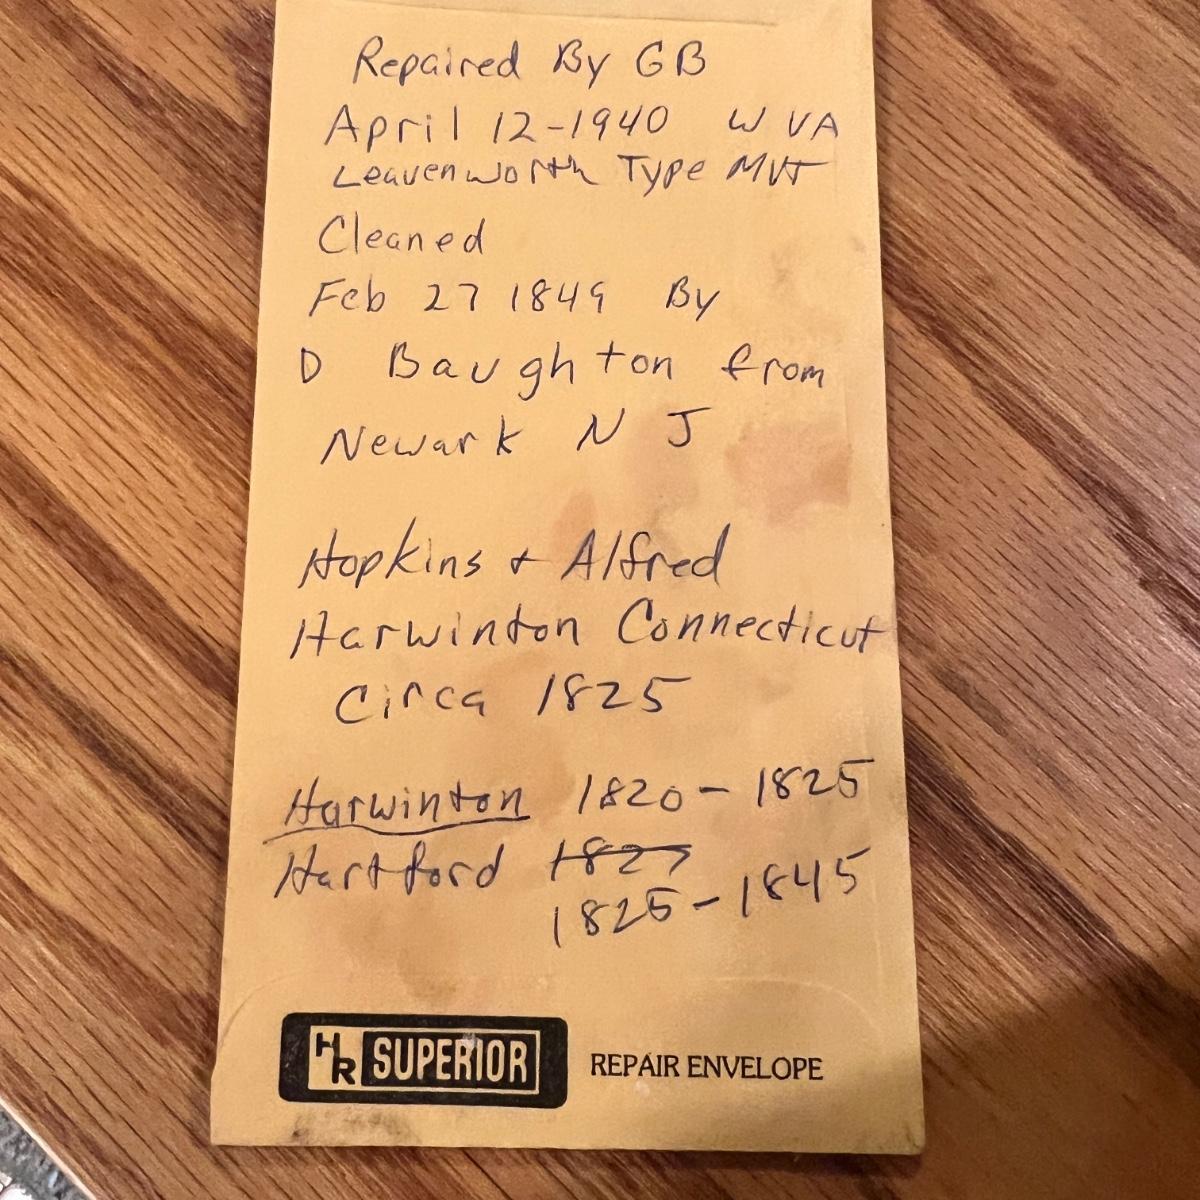 Repaired By GB
April 12-1940 W VA
Leavenworth Type MVT
Cleaned
Feb 27 1849 By
D Baughton from
Newark N J
Hopkins + Alfred
Harwinton Connecticut
Circa 1825
Harwinton 1820-1825
Hartford 1827
1825-1845
HR SUPERIOR REPAIR ENVELOPE